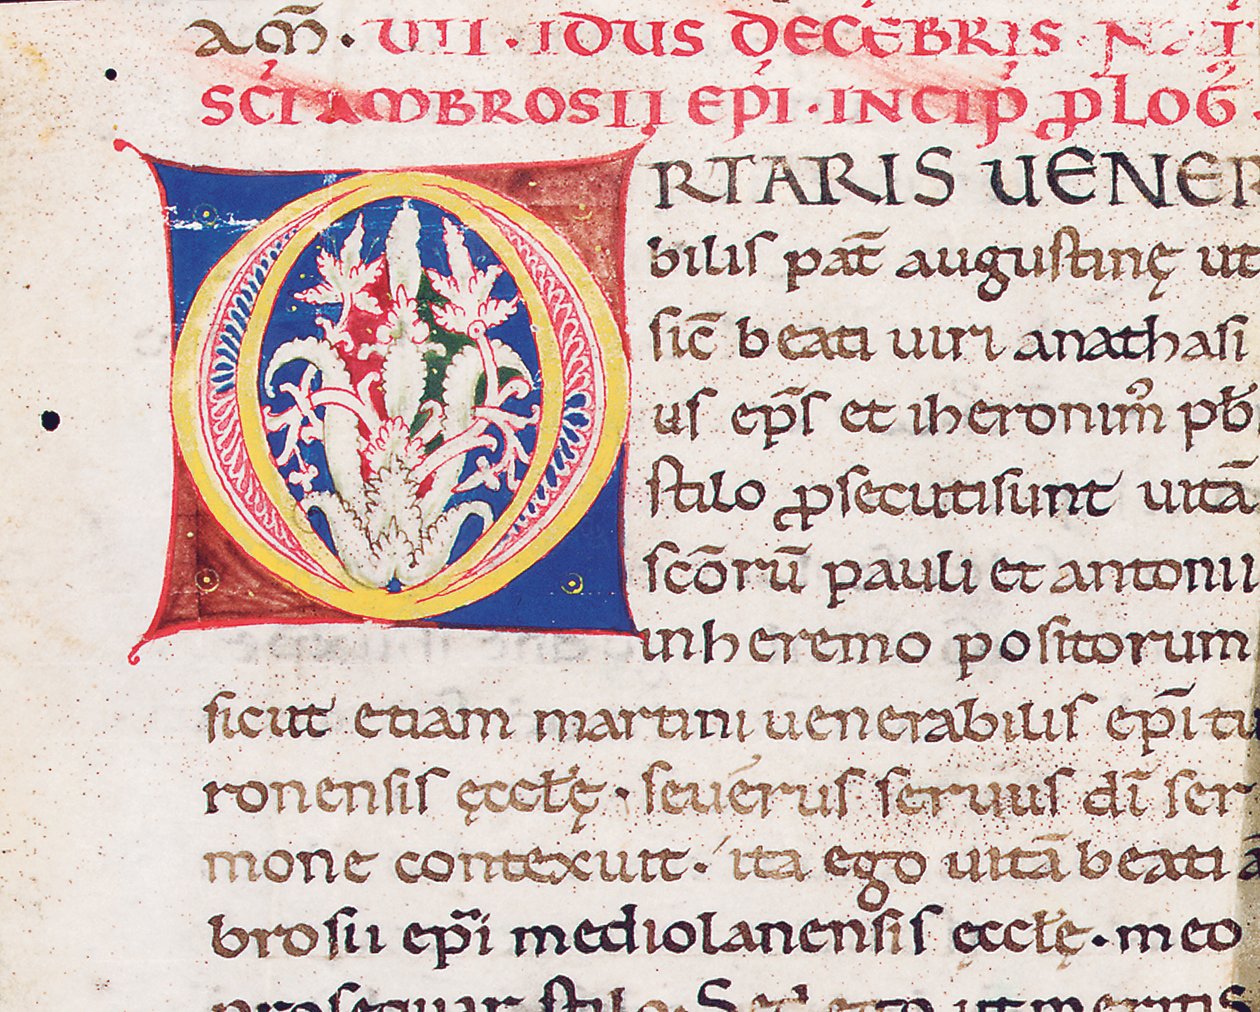 am̄. VIII. IDUS DECĒBRIS. NAT
SC̄I AMBROSII EPĪ. INCIP̄ ꝓLOḠ.
ORTARIS UENER
bilis pat̄ augustinę ut
sic̄ beati uiri anathasi
us ep̄s et iheronim̄ pb̄
stilo ꝓsecuti sunt uitā
sc̄orū pauli et antonii
in heremo positorum
sicut etiam martini uenerabilis ep̄i tu
ronensis ęccłę. seuerus seruus dī ser
mone contexuit. ita ego uitā beati a
brosii ep̄i mediolanensis ęccłę. meo
prosequar stilo. Sed ego ut meritis